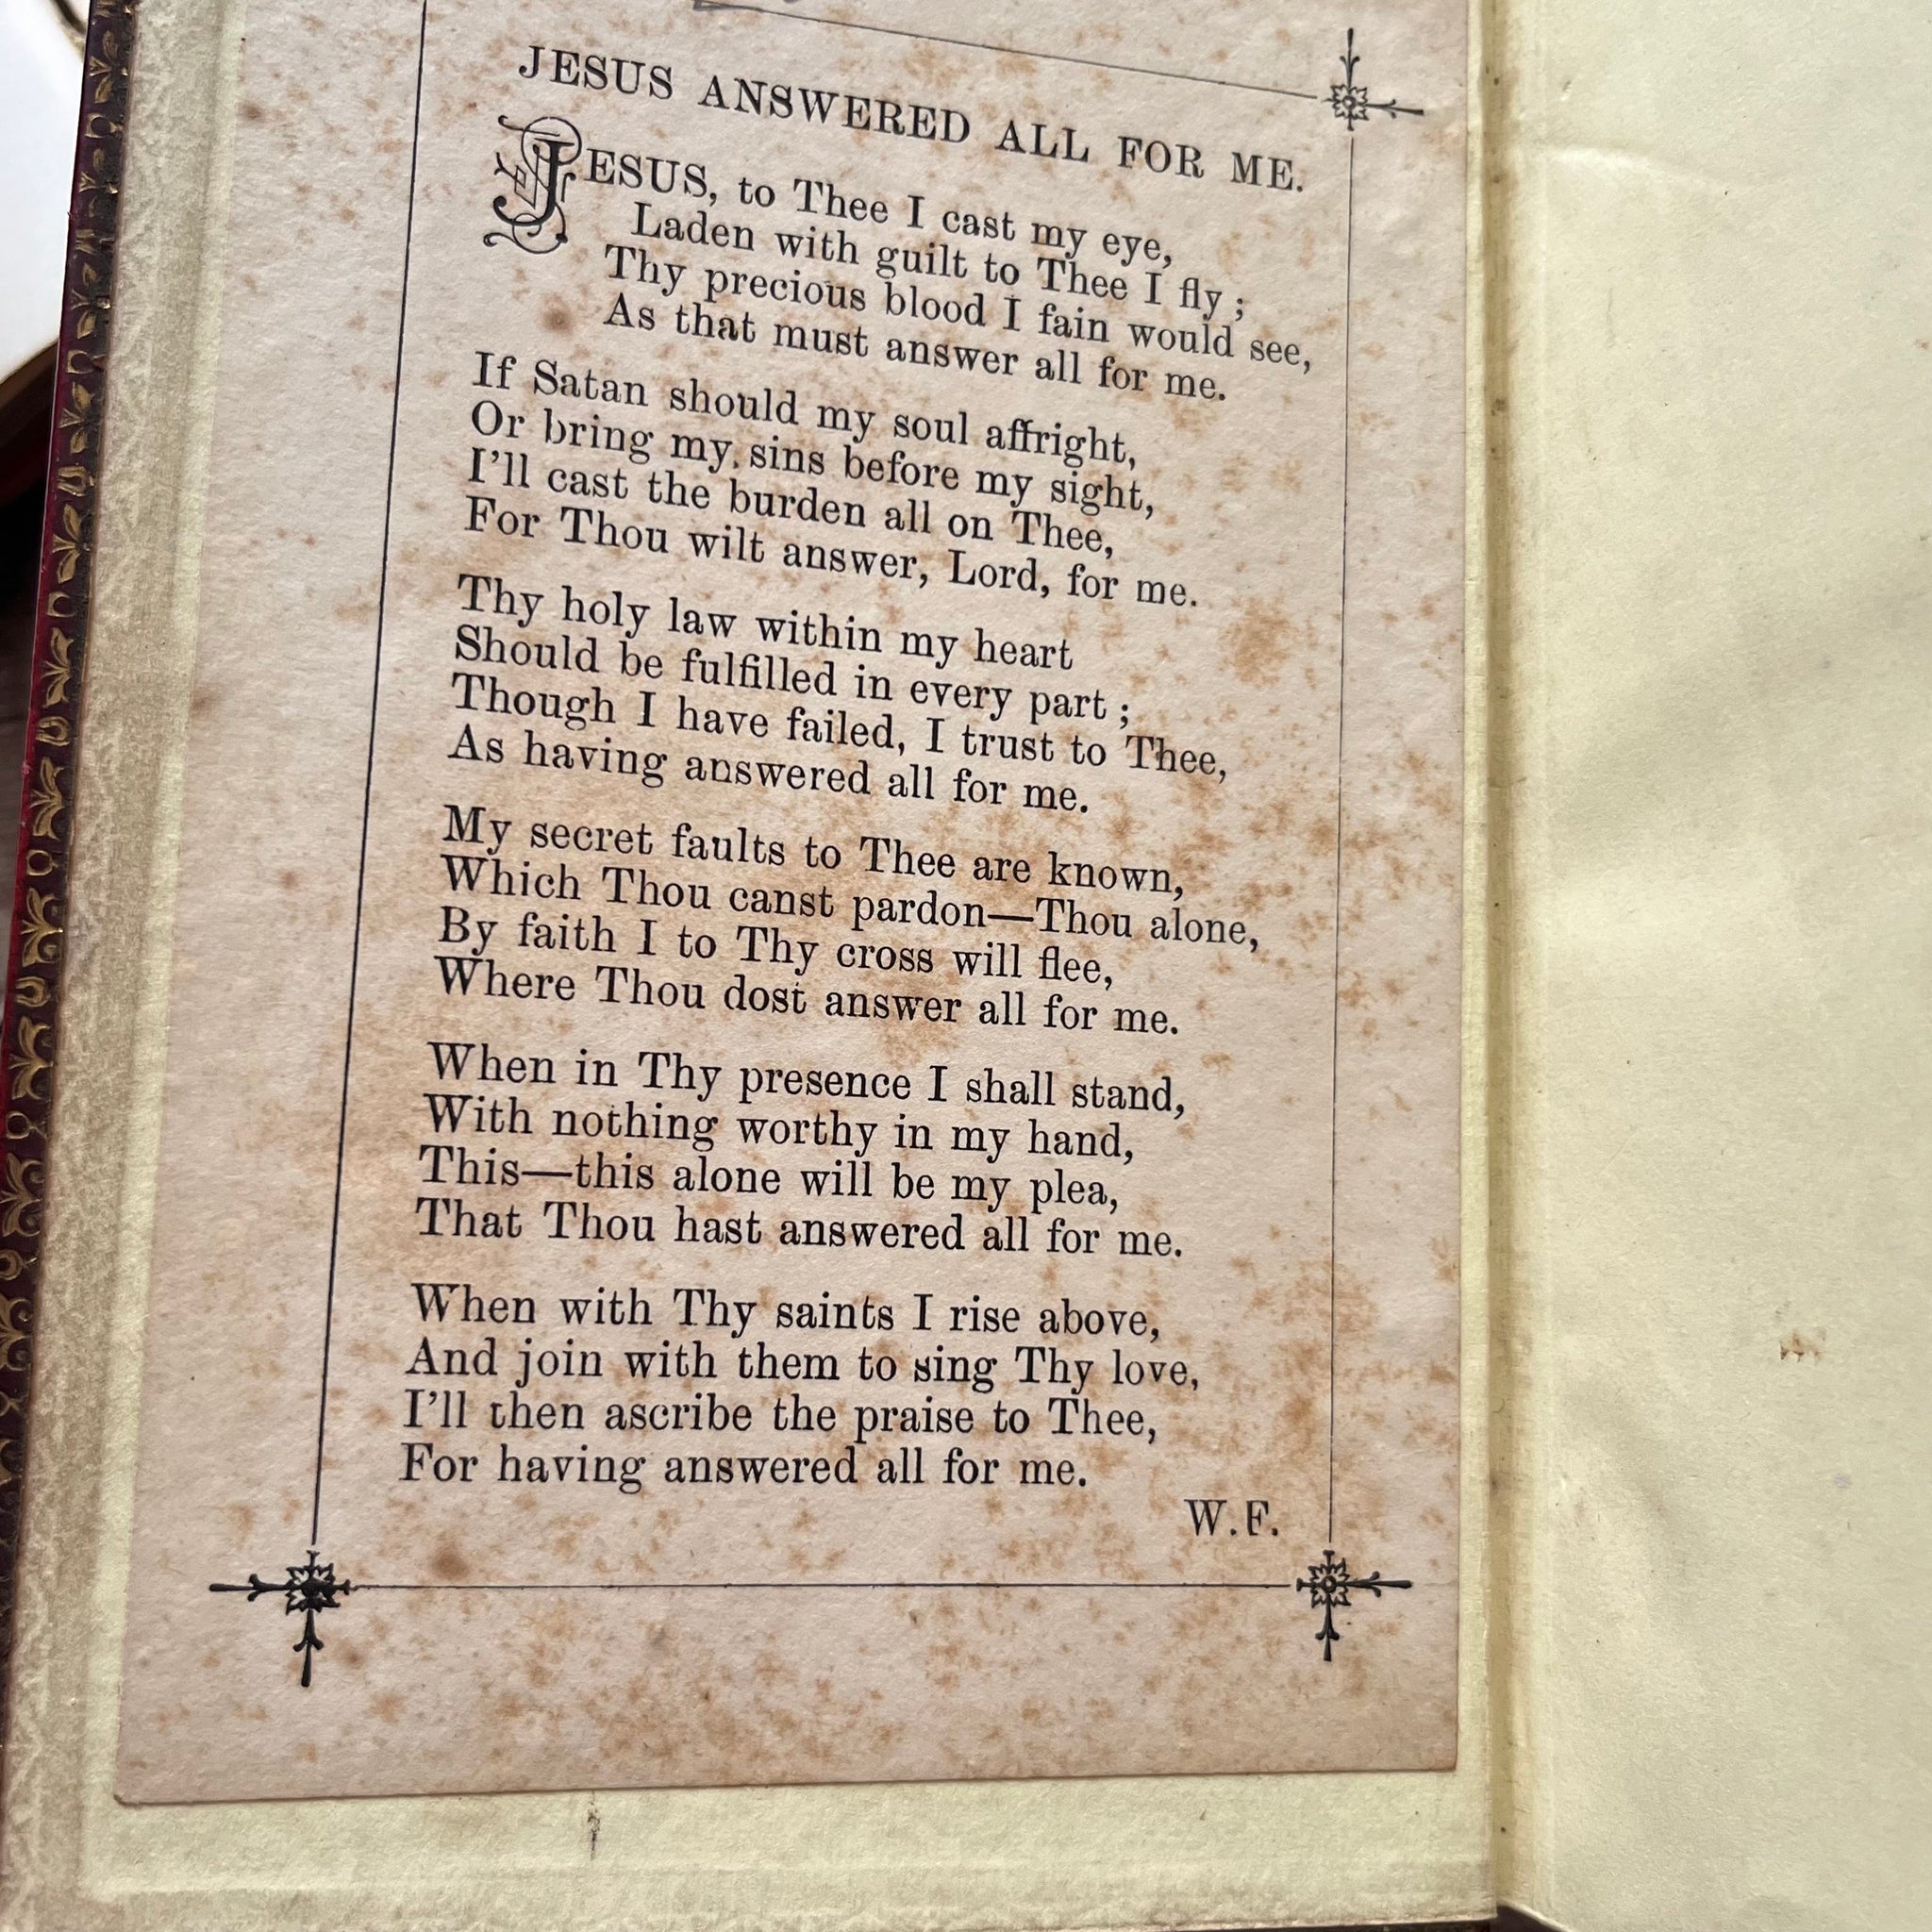 JESUS ANSWERED ALL FOR ME.
JESUS, to Thee I cast my eye,
Laden with guilt to Thee I fly ;
Thy precious blood I fain would see,
As that must answer all for me.
If Satan should my soul affright,
Or bring my sins before my sight,
I'll cast the burden all on Thee,
For Thou wilt answer, Lord, for me.
Thy holy law within my heart
Should be fulfilled in every part ;
Though I have failed, I trust to Thee,
As having answered all for me.
My secret faults to Thee are known,
Which Thou canst pardon—Thou alone,
By faith I to Thy cross will flee,
Where Thou dost answer all for me.
When in Thy presence I shall stand,
With nothing worthy in my hand,
This—this alone will be my plea,
That Thou hast answered all for me.
When with Thy saints I rise above,
And join with them to sing Thy love,
I'll then ascribe the praise to Thee,
For having answered all for me.
W.F.